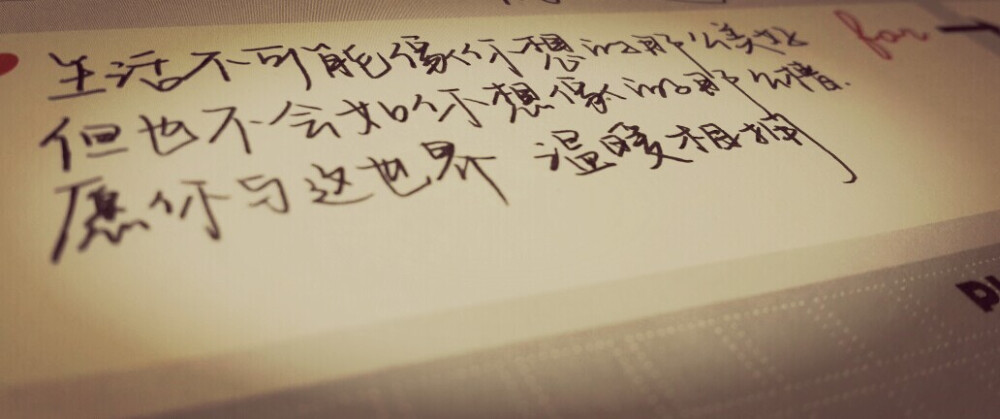 生活不可能像你想的那么美好
但也不会如你想像的那么糟.
愿你与这世界 温暖相拥
for